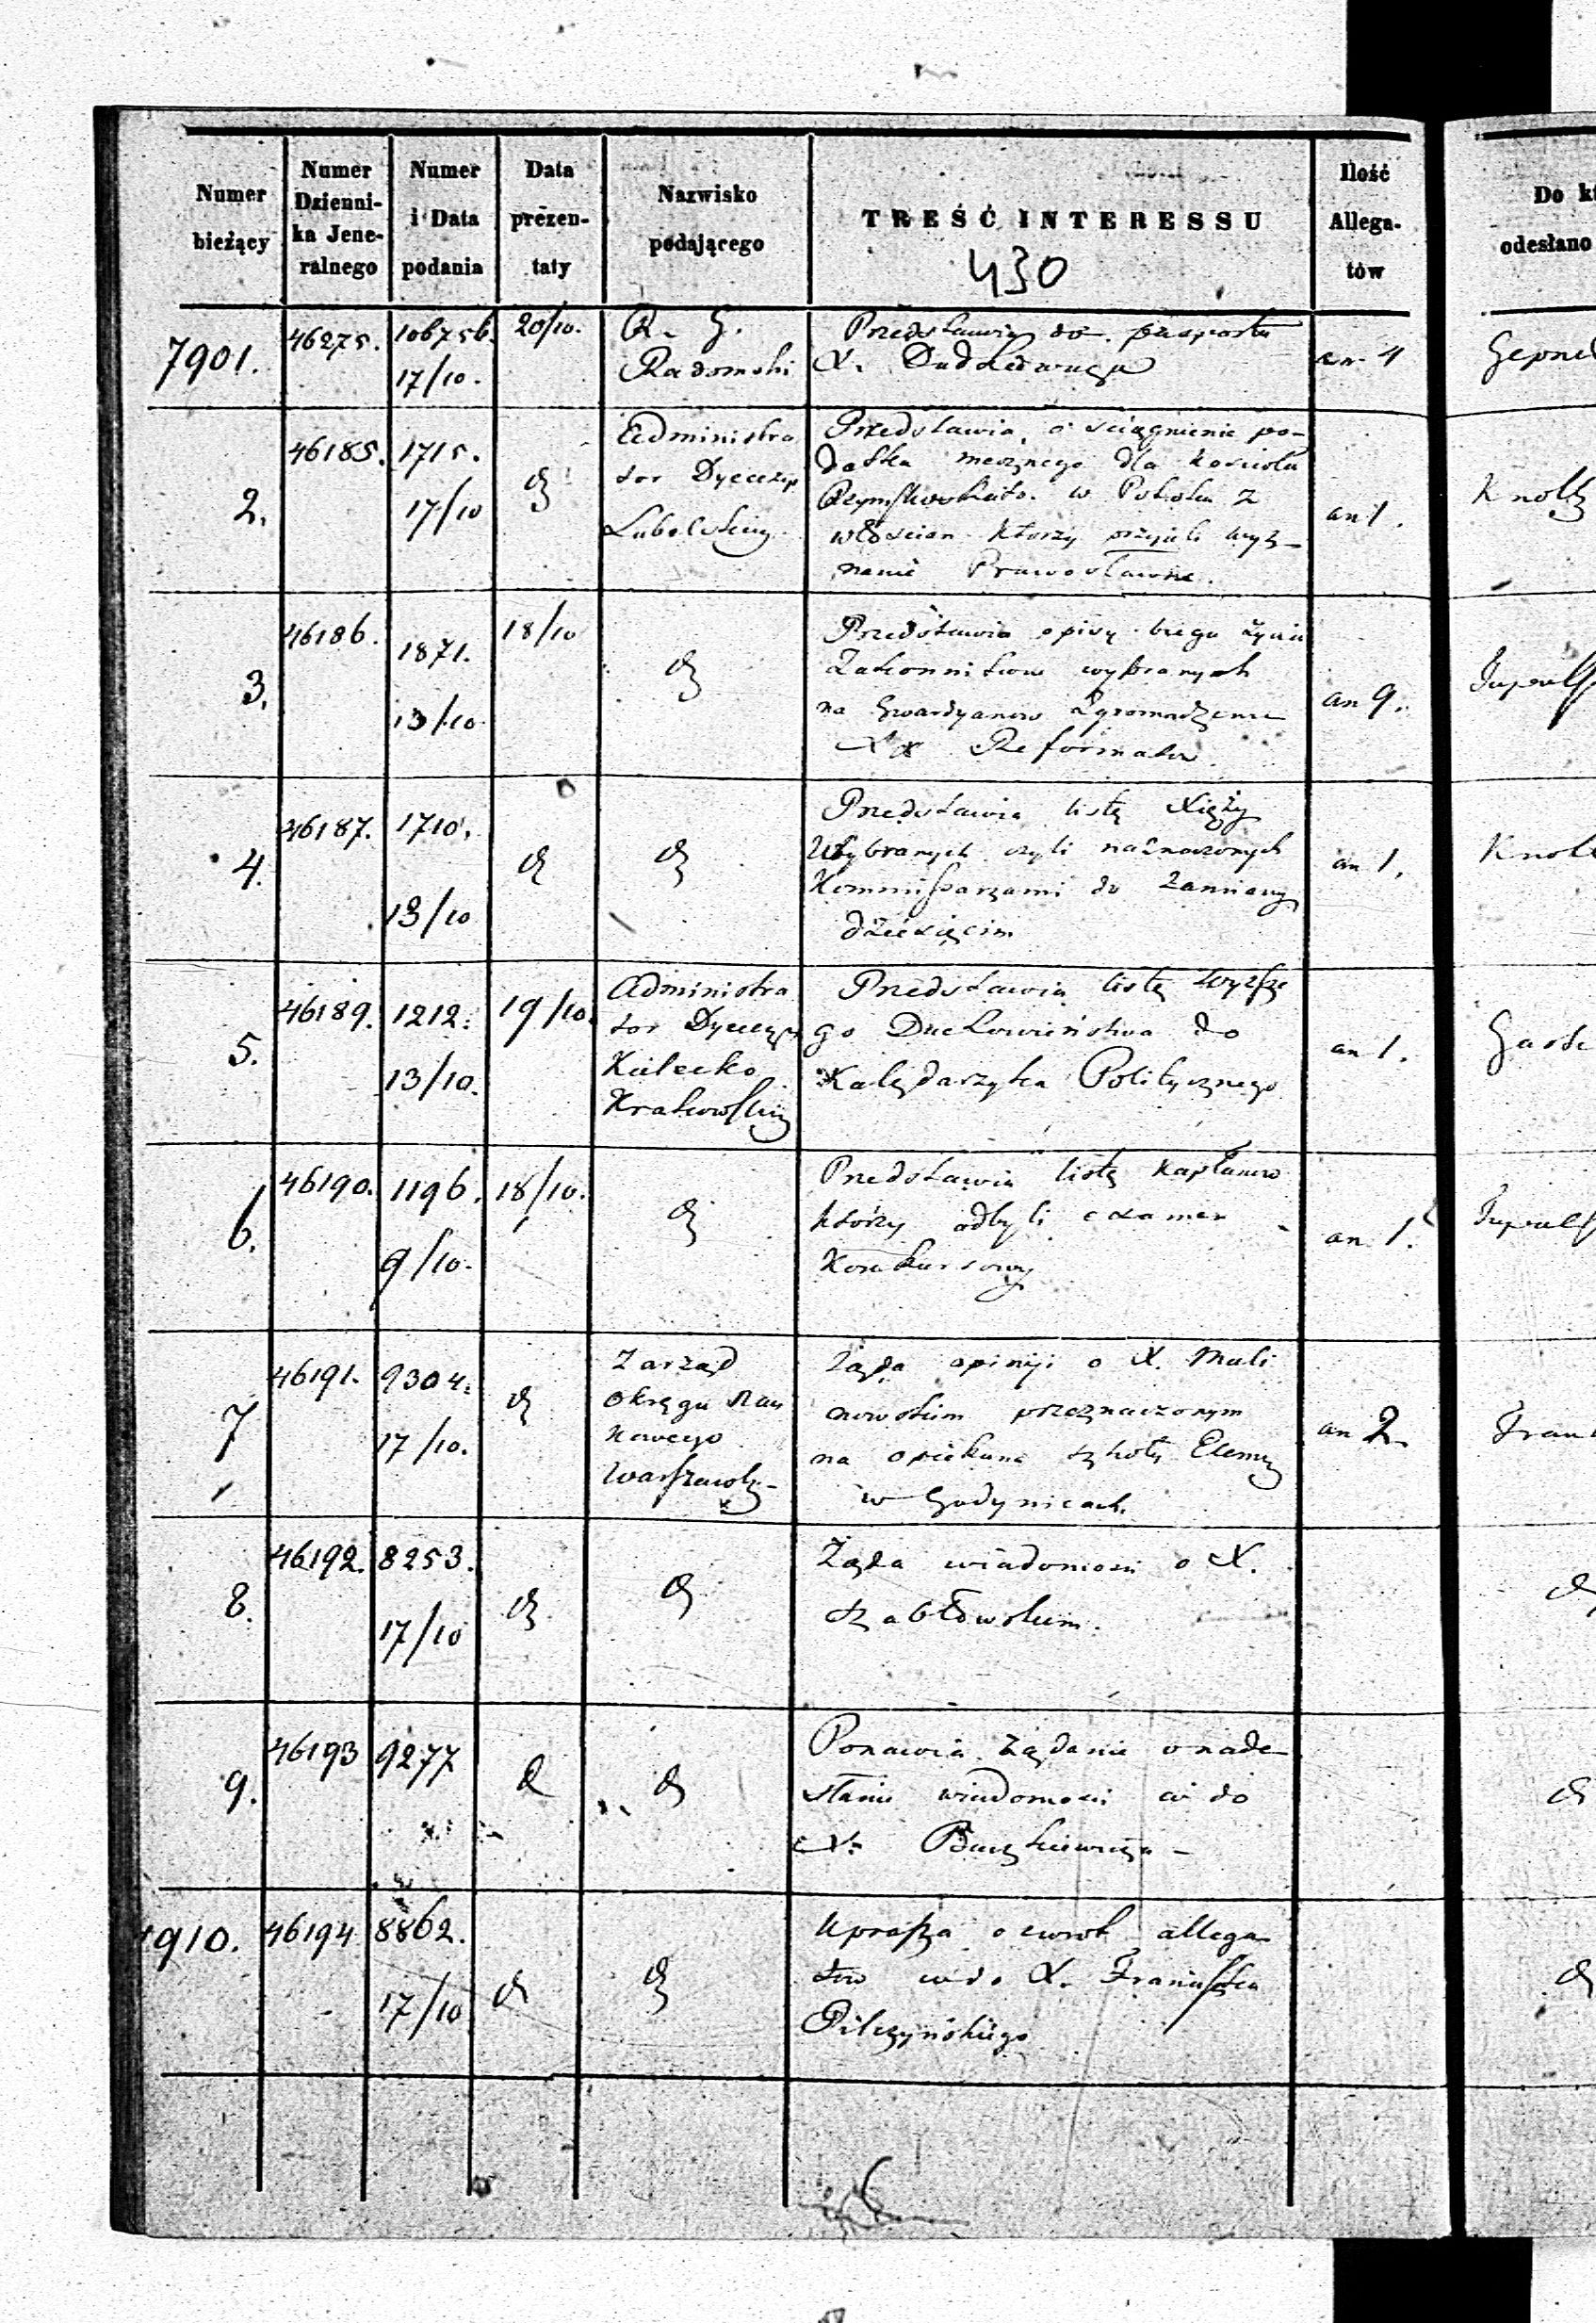 Numer bieżący
Numer Dzienni-ka Jene-ralnego
Numer i Data podania
Data prezen-taty
Nazwisko podającego
TREŚĆ INTERESSU
Ilość Allega-tów
Do
odesłano
430
7901.
46275.
106756.
17/10.
20/10.
R. G.
Radomski
Przedstawia do pasportu
X.
an 4
2.
46185.
1715.
17/10
Administra
tor Dyecezyi
Lubelskiej
Przedstawia o ściągnienie po-
datku mesznego dla kościoła
w z
włościan którzy przyjęli wyz-
nanie Prawosławne.
an 1.
Knoll
3.
46186.
1871.
13/10
18/10
Przedstawia opisy biegu życia
Zakonników wybranych
na Gwardyanów Zgromadzenia
XX Reformatów
an 9.
4.
46187.
1710.
13/10
Przedstawia listę Xięży
Wybranych czyli naznaczonych
Kommissarzami do zamiany
dziesięcin
an 1.
Knoll
5.
46189.
1212.
13/10.
19/10.
Administra
tor Dyecezyi
Kielecko
Krakowskiej
Przedstawia listę wyższe
go Duchowieństwa do
Kalędarzyka Politycznego
an 1.
6.
46190.
1196.
9/10.
18/10.
Przedstawia listę kapłanów
którzy odbyli examen
Konkursowy
an 1.
7
46191.
9304.
17/10.
Zarząd
okręgu Nau
kowego
Warszawsk-
Żąda opinji o X. Mali
nowskim przeznaczonym
na opiekuna szkoły Elemen
w Godynicach.
an 2
8.
46192.
8253.
17/10
Żąda wiadomości o X.
Szabłowskim.
9.
46193
9277
Ponawia żądanie o nade-
słanie wiadomości co do
X.
7910.
46194
8862.
17/10
Uprasza o zwrot allega
tów co do X. Franciszka
Pilczyńskiego